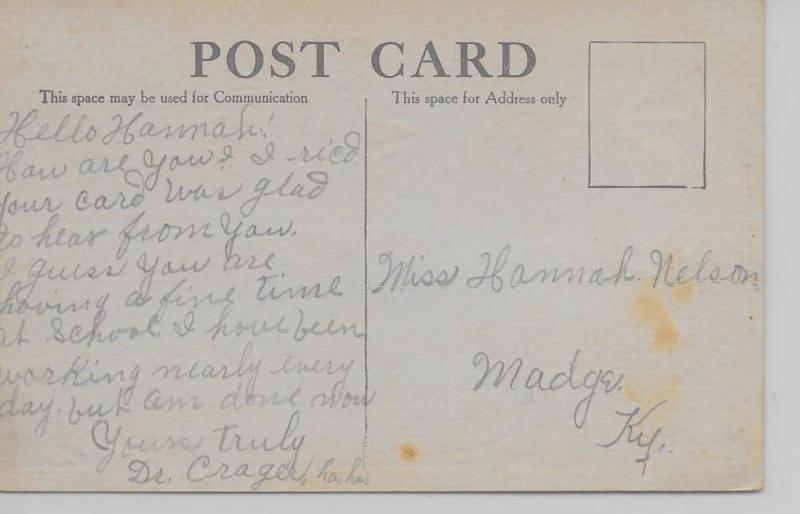 POST CARD
This space may be used for Communication
This space for Address only
Hello Hannah!
How are you? I ricd
your card was glad
to hear from you.
I guess you are
having a fine time
at School. I have been
working nearly every
day. but am done now
Yours truly
Dr. Crager, ha, ha
Miss Hannah Nelson
Madge.
Ky.